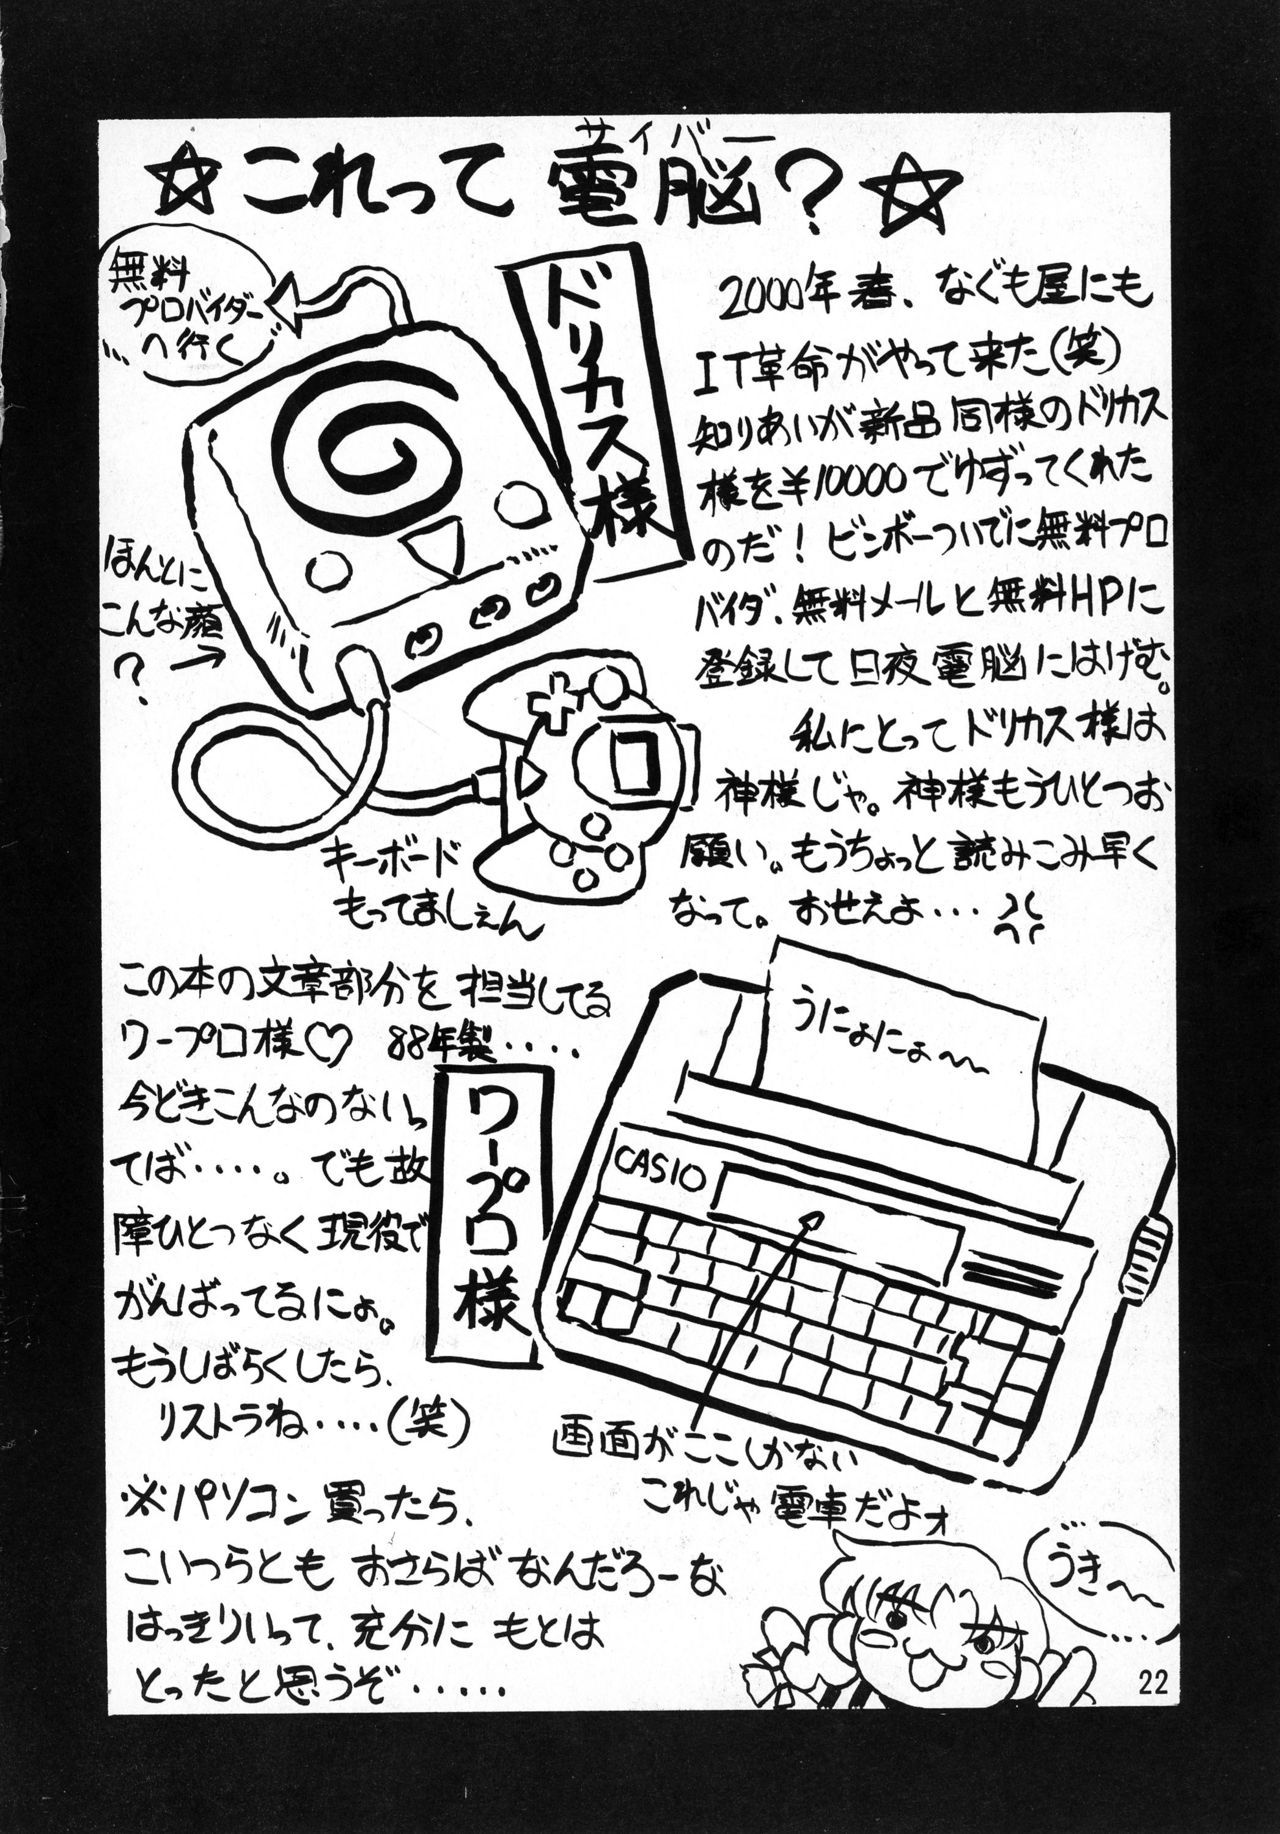 ☆これって電脳？☆
サイバー
無料
プロバイダー
へ行く
ドリカス様
2000年春、なぐも屋にも
IT革命がやって来た(笑)
知りあいが新品同様のドリカス
様を¥10000でゆずってくれた
のだ！ビンボーついでに無料プロ
バイダ、無料メールと無料HPに
登録して日夜電脳にはげむ。
私にとってドリカス様は
神様じゃ。神様もうひとつお
願い。もうちょっと読みこみ早く
なって。おせえよ・・・
ほんとに
こんな顔
？→
キーボード
もってましぇん
この本の文章部分を担当してる
ワープロ様♡ 88年製・・・・
今どきこんなのないっ
てば・・・・。でも故
障ひとつなく現役で
がんばってるにょ。
もうしばらくしたら、
リストラね・・・・(笑)
ワープロ様
うにょにょ〜
CASIO
画面がここしかない
これじゃ電車だよォ
※パソコン買ったら、
こいつらともおさらばなんだろーな
はっきりいって、充分にもとは
とったと思うぞ・・・・・
うき〜
22